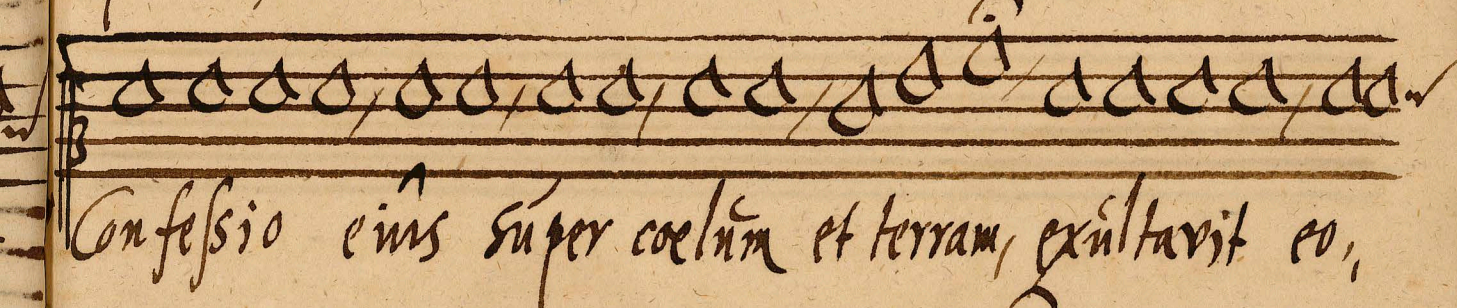 Confeſsio eius super coelum et terram, exultavit eo,,